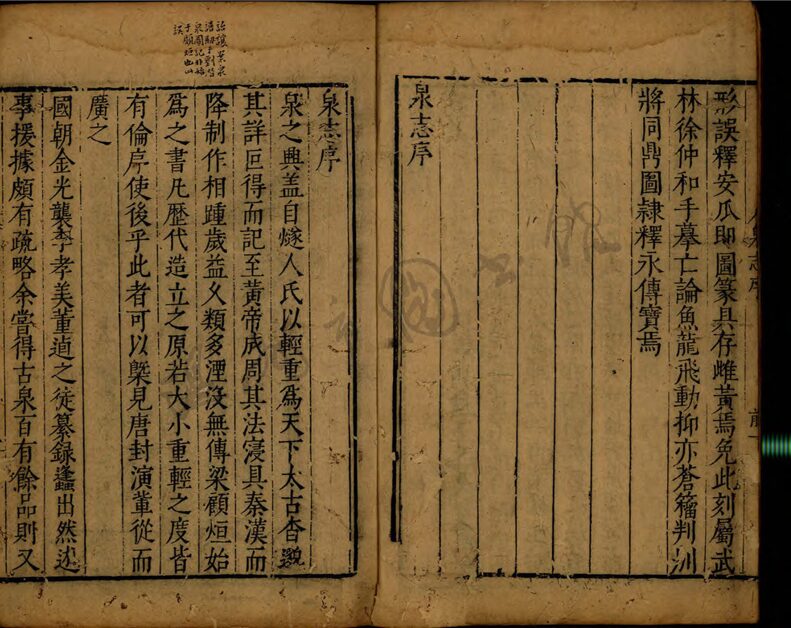 形誤釋安瓜即圖篆具存雌黃焉免此刻屬武
林徐仲和手摹亡論魚龍飛動抑亦蒼籀判
將同鼎圖隷釋永傳寶焉
泉志序
詒讓案泉
譜于劉潛
泉圖記非始
于顧烜也此
誤
泉志序
泉之興蓋自燧人氏以輕重爲天下太古杳邈
其詳叵得而記至黃帝成周其法寖具秦漢而
降制作相踵歲益乆類多湮沒無傳梁顧烜始
爲之書凡歷代造立之原若大小重輕之度皆
有倫序使後乎此者可以槩見唐封演輩從而
廣之
國朝金光襲李孝美董逌之徒纂錄蠭出然述
事援據頗有疏略余嘗得古泉百有餘品則又